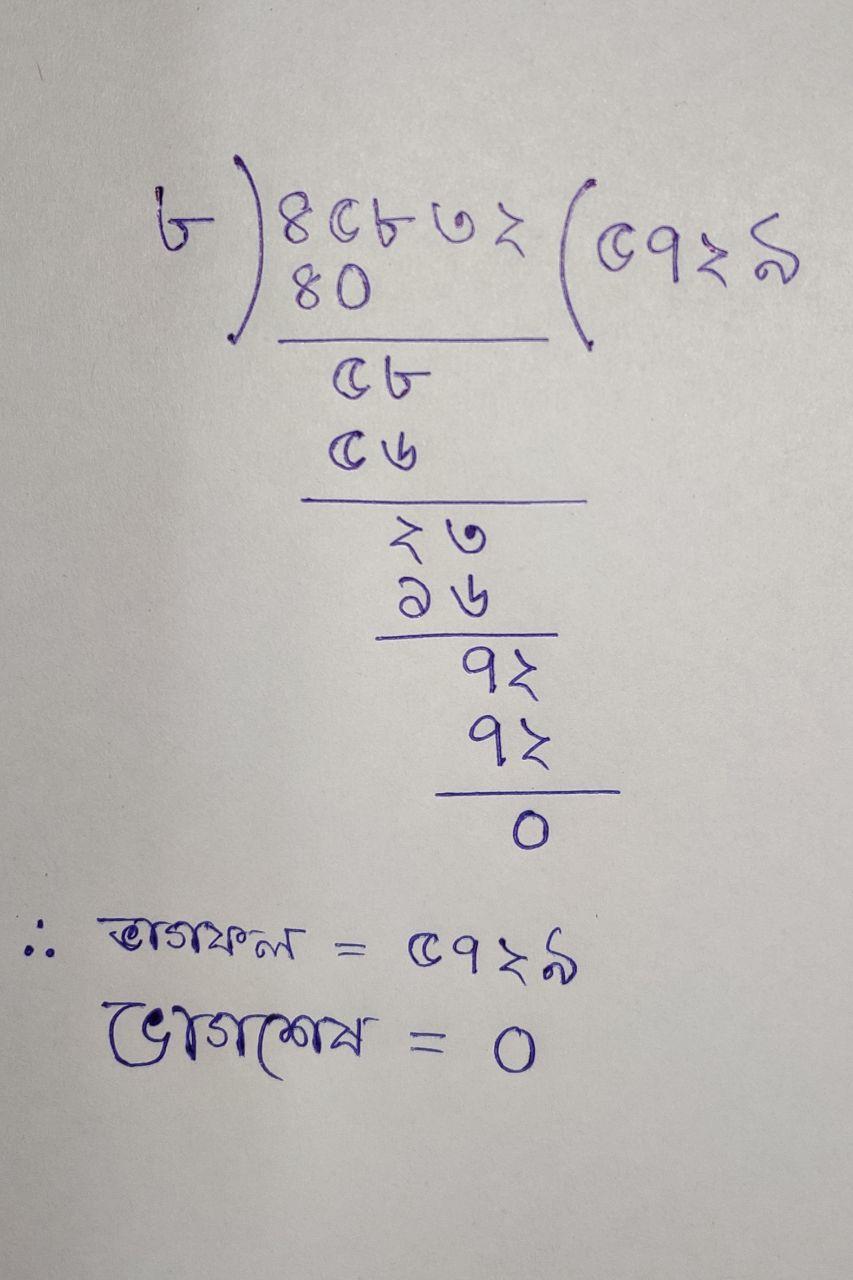 ৮)৪৫৮৩২(৫৭২৯
৪০
৫৮
৫৬
২৩
১৬
৭২
৭২
০
∴ ভাগফল = ৫৭২৯
ভাগশেষ = ০